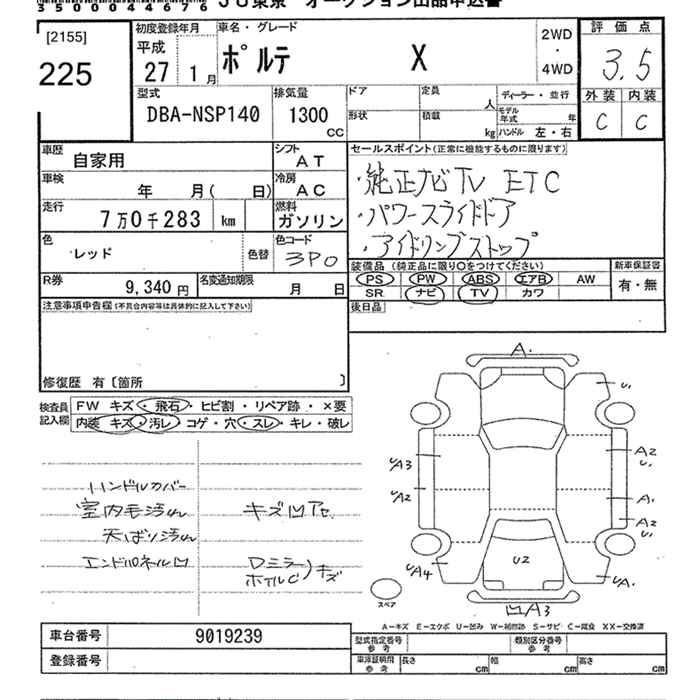 35000446 76 JU東京 オークション出品申込書
[2155]
225
初度登録年月
平成
27 1月
車名・グレード
ポルテ X
2WD
・
4WD
評価点
3.5
外装 内装
C C
型式
DBA-NSP140
排気量
1300
CC
ドア
形状
定員
人
積載
kg
ディーラー・並行
モデル年式 年
ハンドル 左・右
車歴
自家用
シフト
AT
車検
年 月( 日)
冷房
AC
走行
7万0千283 km
燃料
ガソリン
色
レッド
色替
色コード
3P0
R券
9,340円
名変通知期限
月 日
セールスポイント(正常に機能するものに限ります)
・純正ナビTV ETC
・パワースライドドア
・アイドリングストップ
装備品(純正品に限り○をつけてください)
PS PW ABS エアB AW
SR ナビ TV カワ
新車保証書
有・無
後日品
注意事項申告欄(不具合内容等は具体的に記入して下さい)
修復歴 有〔箇所 〕
検査員記入欄
FW キズ・飛石・ヒビ割・リペア跡・×要
内装 キズ・汚レ・コゲ・穴・スレ・キレ・破レ
ハンドルカバー
室内毛汚れ
天ばり汚れ
エンドパネル凹
キズ凹アセ
Dミラー
ホイルC
キズ
A.
U.
UA3
A2
U.
UA2
A.
A2
U.
UA4
U2
UA.
凹A3
スペア
A−キズ E−エクボ U−凹み W−補修跡 S−サビ C−腐食 XX−交換済
車台番号
9019239
登録番号
型式指定番号
参考
類別区分番号
参考
車庫証明用
参考
長さ cm
幅 cm
高さ cm